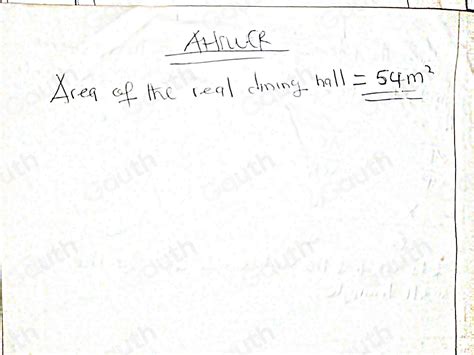 ANSWER
Area of the real dining hall = 54m²